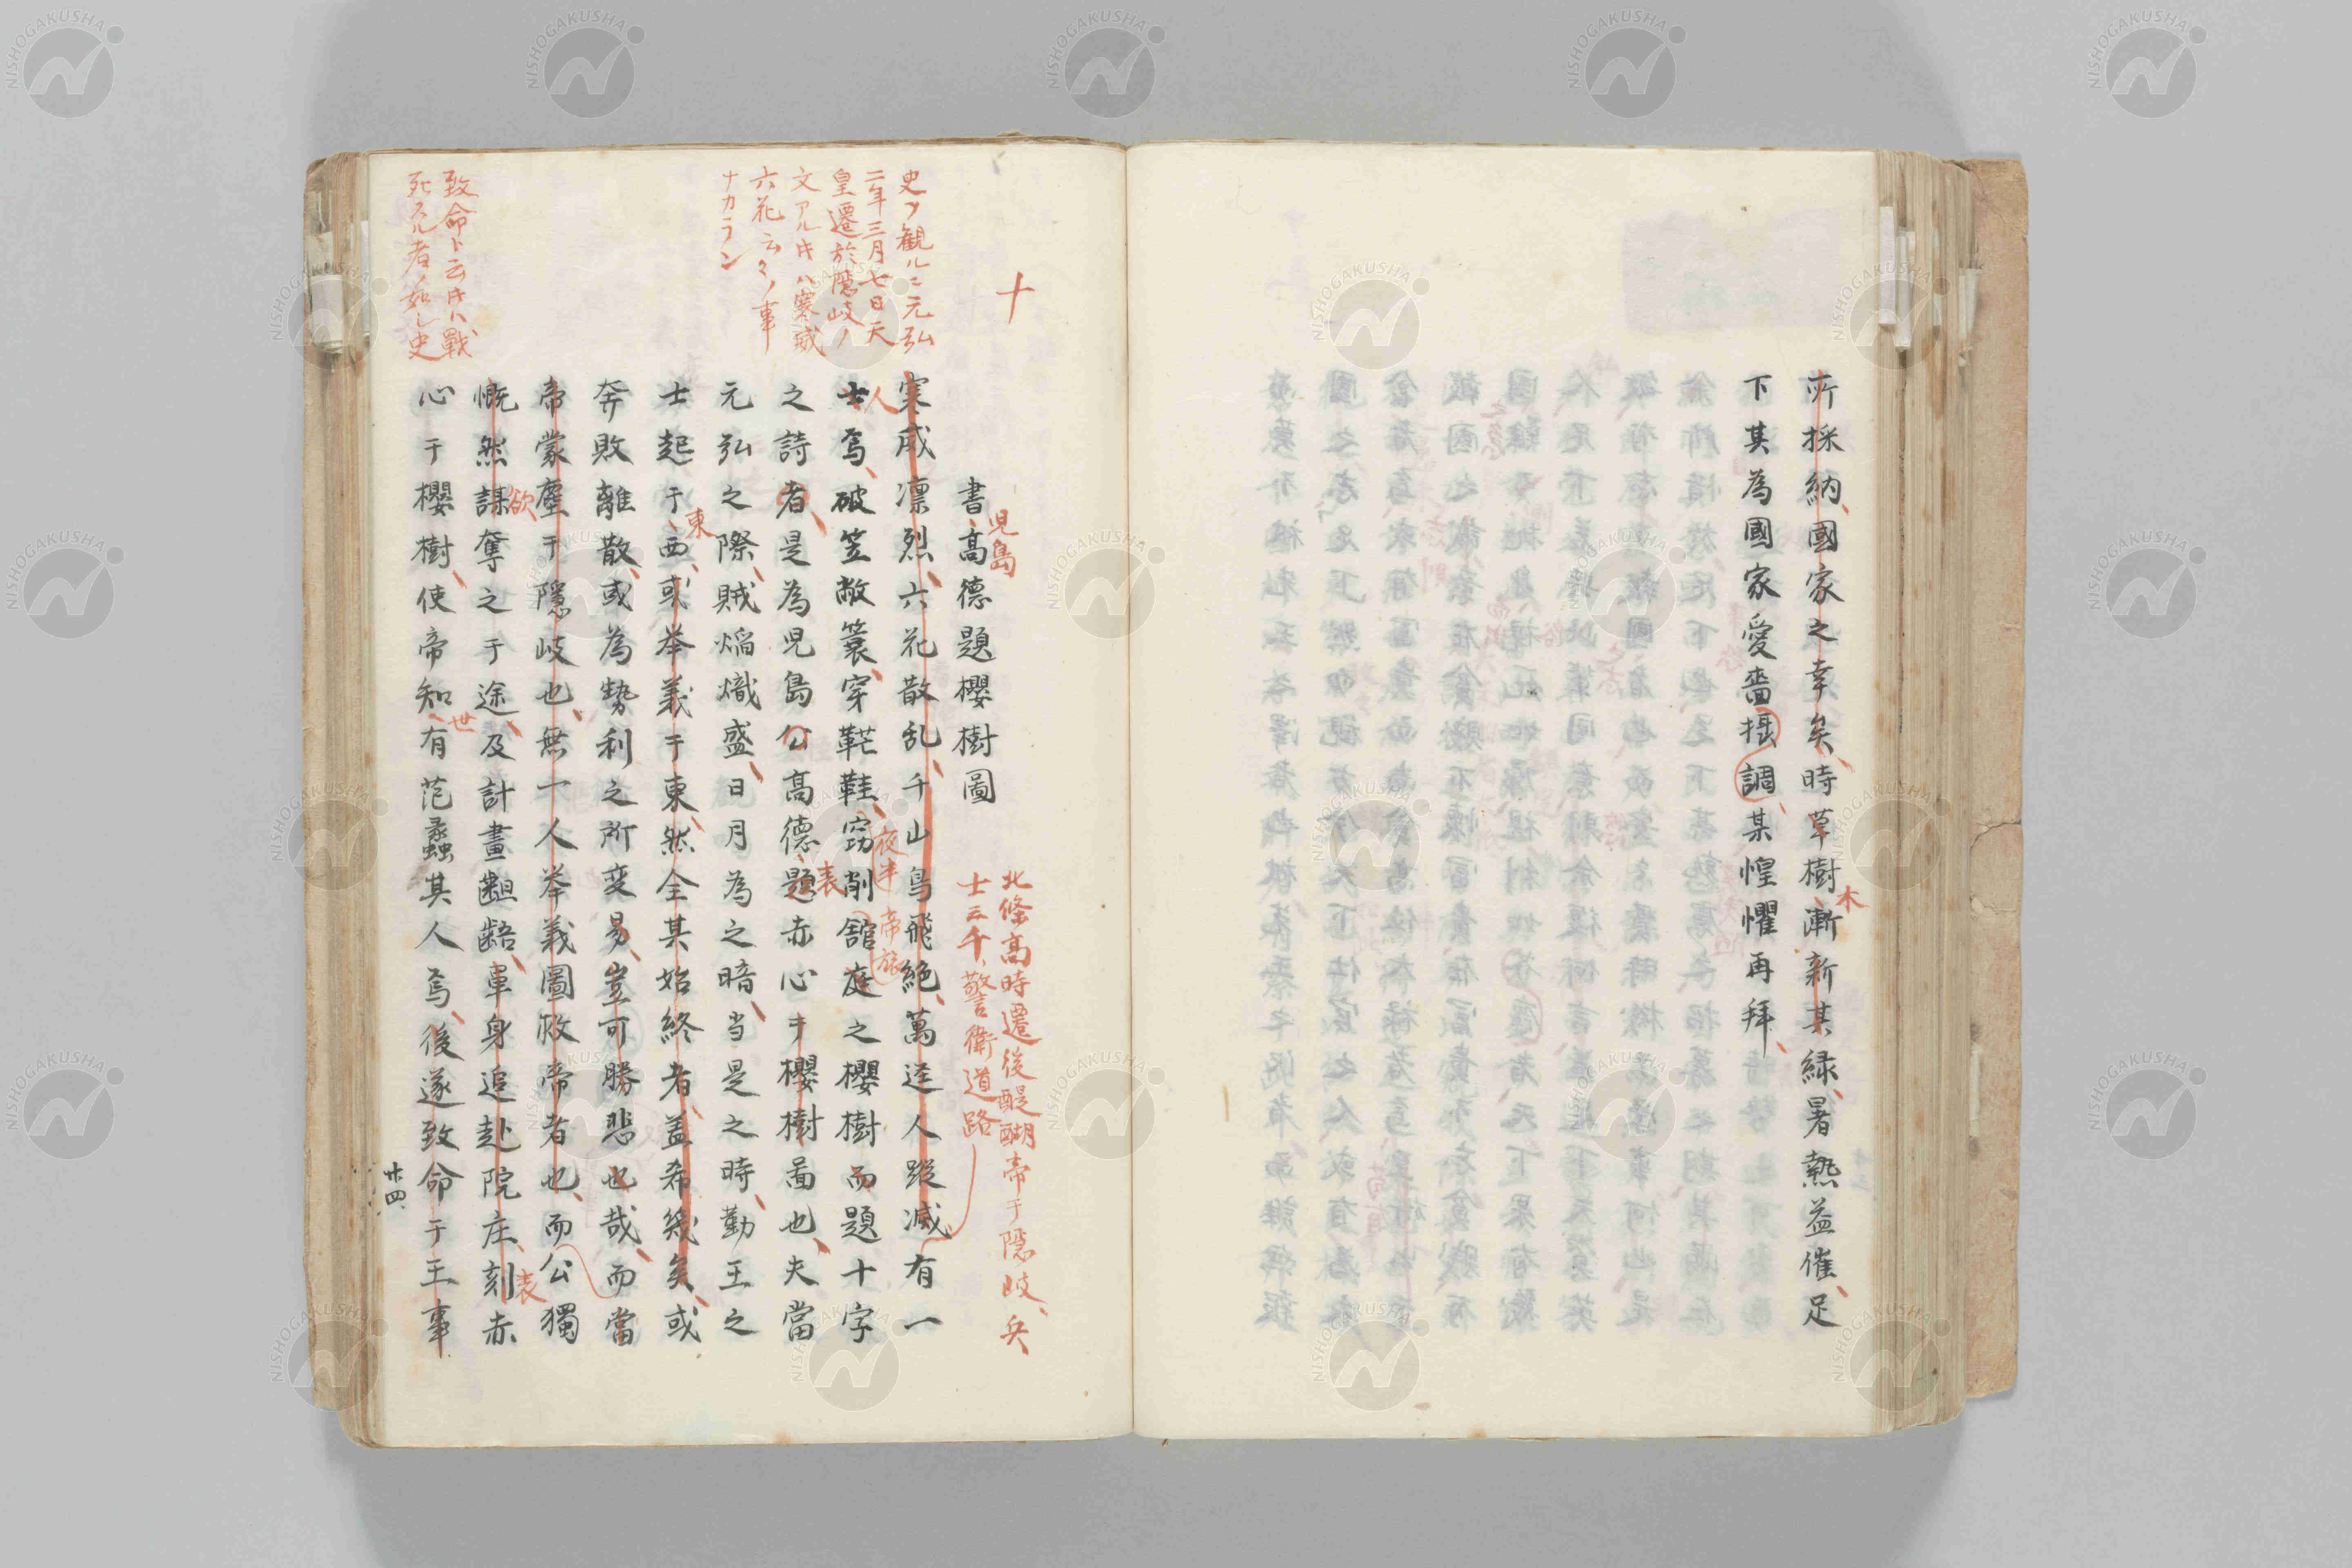 所採納國家之幸矣時草樹漸新某緑暑熱益催足
木
下其為國家愛嗇摂調某惶懼再拜
十
書高德題櫻樹圖
児島
北條高時遷後醍醐帝于隠岐兵
士三千警衛道路
寒威凛烈六花散乱千山鳥飛絶萬逕人蹤滅有一
人
士焉破笠敝簑穿鞋鞋窃削舘庭之櫻樹而題十字
夜半
帝旅
之詩者是為児島公高德題赤心于櫻樹啚也夫當
表
元弘之際賊焔熾盛日月為之暗当是之時勤王之
士起于西或举義于東然全其始終者盖希幾矣或
東
奔敗離散或為勢利之所変易豈可勝悲也哉而當
帝蒙塵于隠岐也無一人举義圖救帝者也而公獨
慨然謀奪之于途及計畫齟齬単身追赴院庄刻赤
欲
表
心于櫻樹使帝知有范蠡其人焉後遂致命于王事
世
史ヲ観ルニ元弘
二年三月七日天
皇遷於隠岐ノ
文アル時ハ寒威
六花云々ノ事
ナカラン
致命ト云時ハ戰
死スル者ノ如シ史
廿四
NISHOGAKUSHA